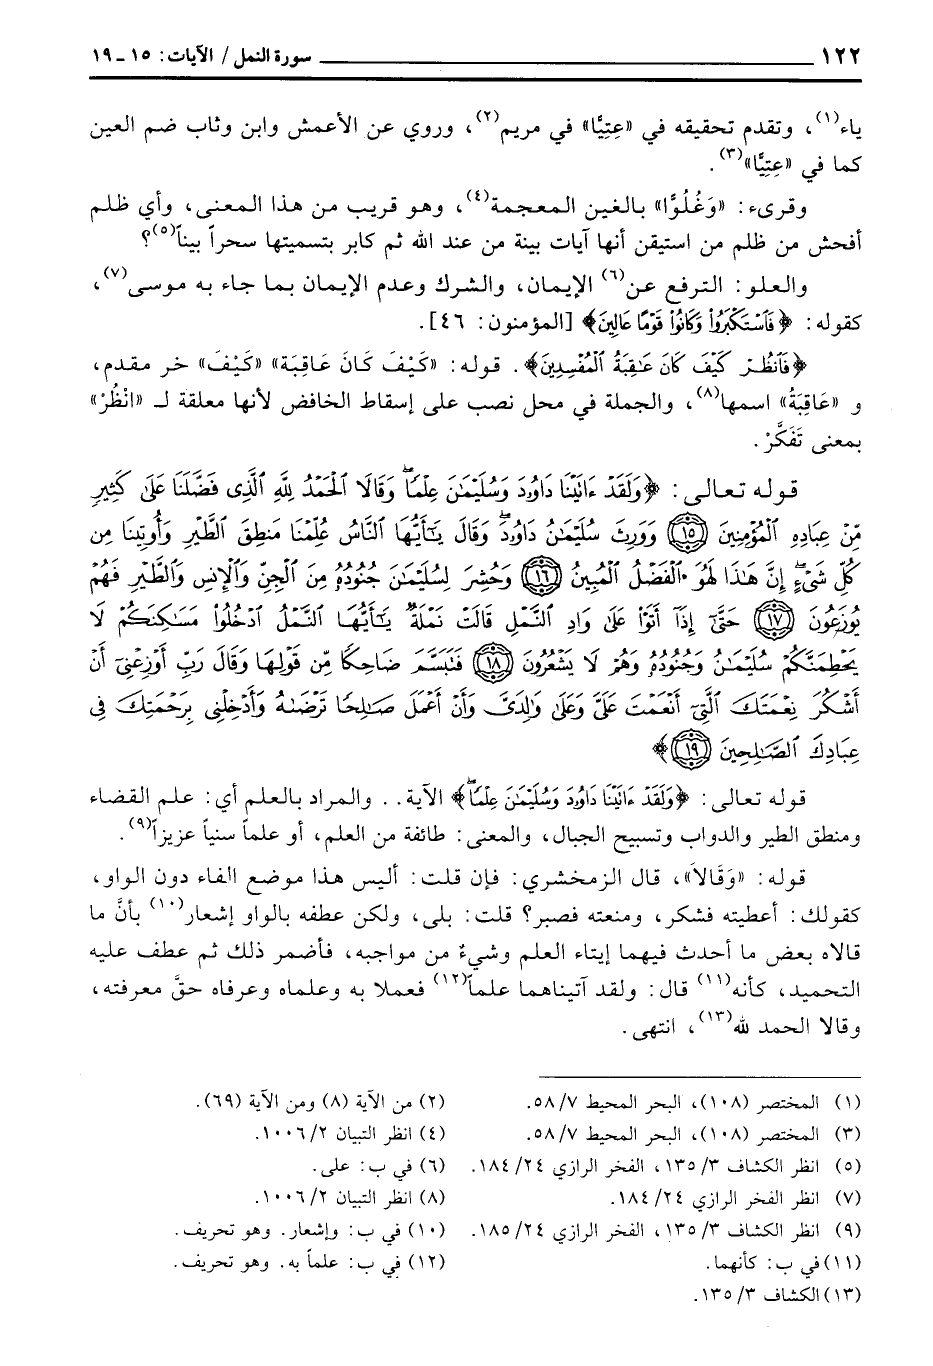 ١٢٢ ــــــــــــــــــــ سورة النمل / الآيات: ١٥ ـ ١٩
ياء(١)، وتقدم تحقيقه في «عِتِيًّا» في مريم(٢)، وروي عن الأعمش وابن وثاب ضم العين
كما في «عِتِيًّا»(٣).
وقرىء: «وَغُلُوًّا» بالغين المعجمة(٤)، وهو قريب من هذا المعنى، وأي ظلم
أفحش من ظلم من استيقن أنها آيات بينة من عند الله ثم كابر بتسميتها سحراً بيناً(٥)؟
والعلو: الترفع عن(٦) الإيمان، والشرك وعدم الإيمان بما جاء به موسى(٧)،
كقوله: ﴿فَٱسْتَكْبَرُواْ وَكَانُواْ قَوْمًا عَالِينَ﴾ [المؤمنون: ٤٦].
﴿فَٱنظُرْ كَيْفَ كَانَ عَٰقِبَةُ ٱلْمُفْسِدِينَ﴾. قوله: «كَيْفَ كَانَ عَاقِبَة» «كَيْفَ» خر مقدم،
و «عَاقِبَةُ» اسمها(٨)، والجملة في محل نصب على إسقاط الخافض لأنها معلقة لـ «انْظُرْ»
بمعنى تَفَكَّرْ.
قوله تعالى: ﴿وَلَقَدْ ءَاتَيْنَا دَاوُۥدَ وَسُلَيْمَٰنَ عِلْمًاۖ وَقَالَا ٱلْحَمْدُ لِلَّهِ ٱلَّذِى فَضَّلَنَا عَلَىٰ كَثِيرٍ
مِّنْ عِبَادِهِ ٱلْمُؤْمِنِينَ ﴿١٥﴾ وَوَرِثَ سُلَيْمَٰنُ دَاوُۥدَۖ وَقَالَ يَٰٓأَيُّهَا ٱلنَّاسُ عُلِّمْنَا مَنطِقَ ٱلطَّيْرِ وَأُوتِينَا مِن
كُلِّ شَىْءٍۖ إِنَّ هَٰذَا لَهُوَ ٱلْفَضْلُ ٱلْمُبِينُ ﴿١٦﴾ وَحُشِرَ لِسُلَيْمَٰنَ جُنُودُهُۥ مِنَ ٱلْجِنِّ وَٱلْإِنسِ وَٱلطَّيْرِ فَهُمْ
يُوزَعُونَ ﴿١٧﴾ حَتَّىٰٓ إِذَآ أَتَوْاْ عَلَىٰ وَادِ ٱلنَّمْلِ قَالَتْ نَمْلَةٌ يَٰٓأَيُّهَا ٱلنَّمْلُ ٱدْخُلُواْ مَسَٰكِنَكُمْ لَا
يَحْطِمَنَّكُمْ سُلَيْمَٰنُ وَجُنُودُهُۥ وَهُمْ لَا يَشْعُرُونَ ﴿١٨﴾ فَتَبَسَّمَ ضَاحِكًا مِّن قَوْلِهَا وَقَالَ رَبِّ أَوْزِعْنِىٓ أَنْ
أَشْكُرَ نِعْمَتَكَ ٱلَّتِىٓ أَنْعَمْتَ عَلَىَّ وَعَلَىٰ وَٰلِدَىَّ وَأَنْ أَعْمَلَ صَٰلِحًا تَرْضَىٰهُ وَأَدْخِلْنِى بِرَحْمَتِكَ فِى
عِبَادِكَ ٱلصَّٰلِحِينَ ﴿١٩﴾﴾
قوله تعالى: ﴿وَلَقَدْ ءَاتَيْنَا دَاوُۥدَ وَسُلَيْمَٰنَ عِلْمًاۖ﴾ الآية.. والمراد بالعلم أي: علم القضاء
ومنطق الطير والدواب وتسبيح الجبال، والمعنى: طائفة من العلم، أو علماً سنياً عزيزاً(٩).
قوله: «وَقَالاَ»، قال الزمخشري: فإن قلت: أليس هذا موضع الفاء دون الواو،
كقولك: أعطيته فشكر، ومنعته فصبر؟ قلت: بلى، ولكن عطفه بالواو إشعار(١٠) بأنَّ ما
قالاه بعض ما أحدث فيهما إيتاء العلم وشيءٌ من مواجبه، فأضمر ذلك ثم عطف عليه
التحميد، كأنه(١١) قال: ولقد آتيناهما علماً(١٢) فعملا به وعلماه وعرفاه حقَّ معرفته،
وقالا الحمد لله(١٣)، انتهى.
(١) المختصر (١٠٨)، البحر المحيط ٥٨/٧. (٢) من الآية (٨) ومن الآية (٦٩).
(٣) المختصر (١٠٨)، البحر المحيط ٥٨/٧. (٤) انظر التبيان ١٠٠٦/٢.
(٥) انظر الكشاف ١٣٥/٣، الفخر الرازي ١٨٤/٢٤. (٦) في ب: على.
(٧) انظر الفخر الرازي ١٨٤/٢٤. (٨) انظر التبيان ١٠٠٦/٢.
(٩) انظر الكشاف ١٣٥/٣، الفخر الرازي ١٨٥/٢٤. (١٠) في ب: وإشعار. وهو تحريف.
(١١) في ب: كأنهما. (١٢) في ب: علماً به. وهو تحريف.
(١٣) الكشاف ١٣٥/٣.